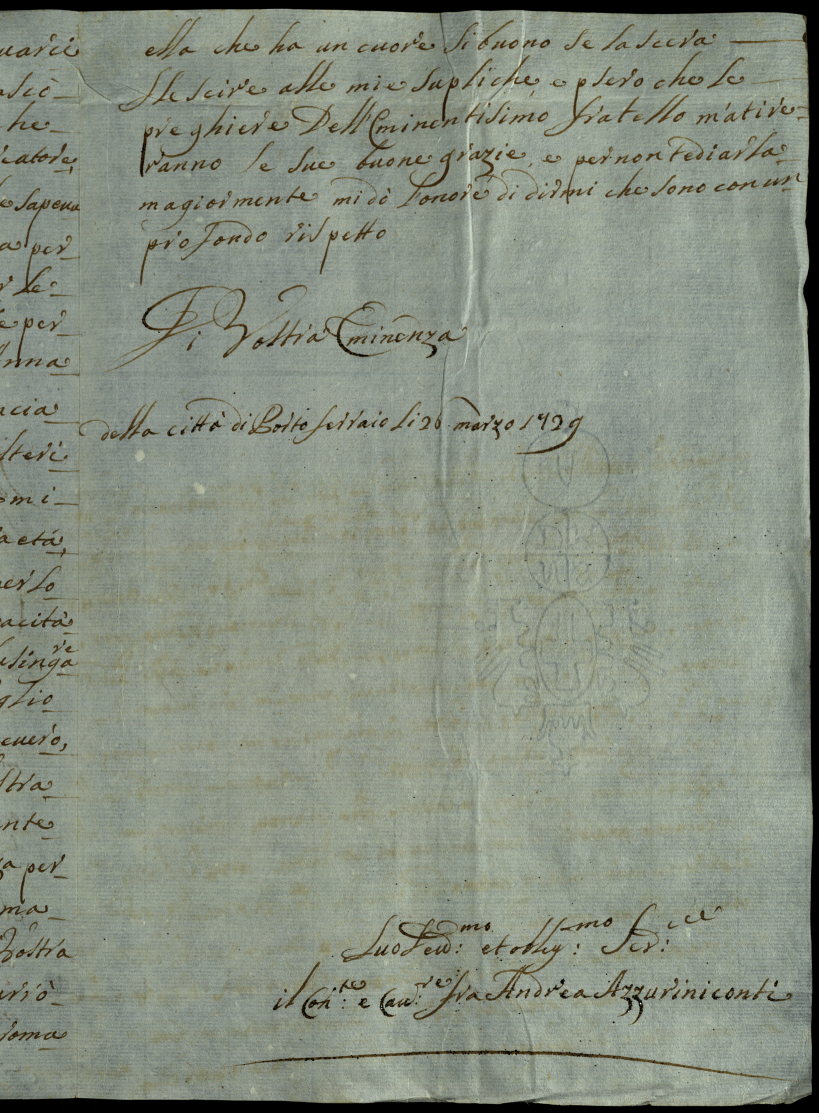 uarci
ascò
he
catore,
le sapeua
a per
r le
e per
Anna
ncia
lteri
omi
a età,
per lo
acità
usingare
glio
euero,
stra
nte
za per
ma
Vostra
urrò
roma
ella che ha un cuore si buono se lascera
flescire alle mie supliche, e spero che le
preghiere Dell Eminentisimo fratello m'atire
ranno le sue buone grazie, e per non tediarla
magiormente mi dò l'onore di dirmi che sono con un
profondo rispetto
Di Vostra Eminenza
della città di Porto ferraio li 26 marzo 1729
Suo Deu:mo et oblig:mo Ser:
il Con:te e Cau:re fra Andrea Azzuriniconti